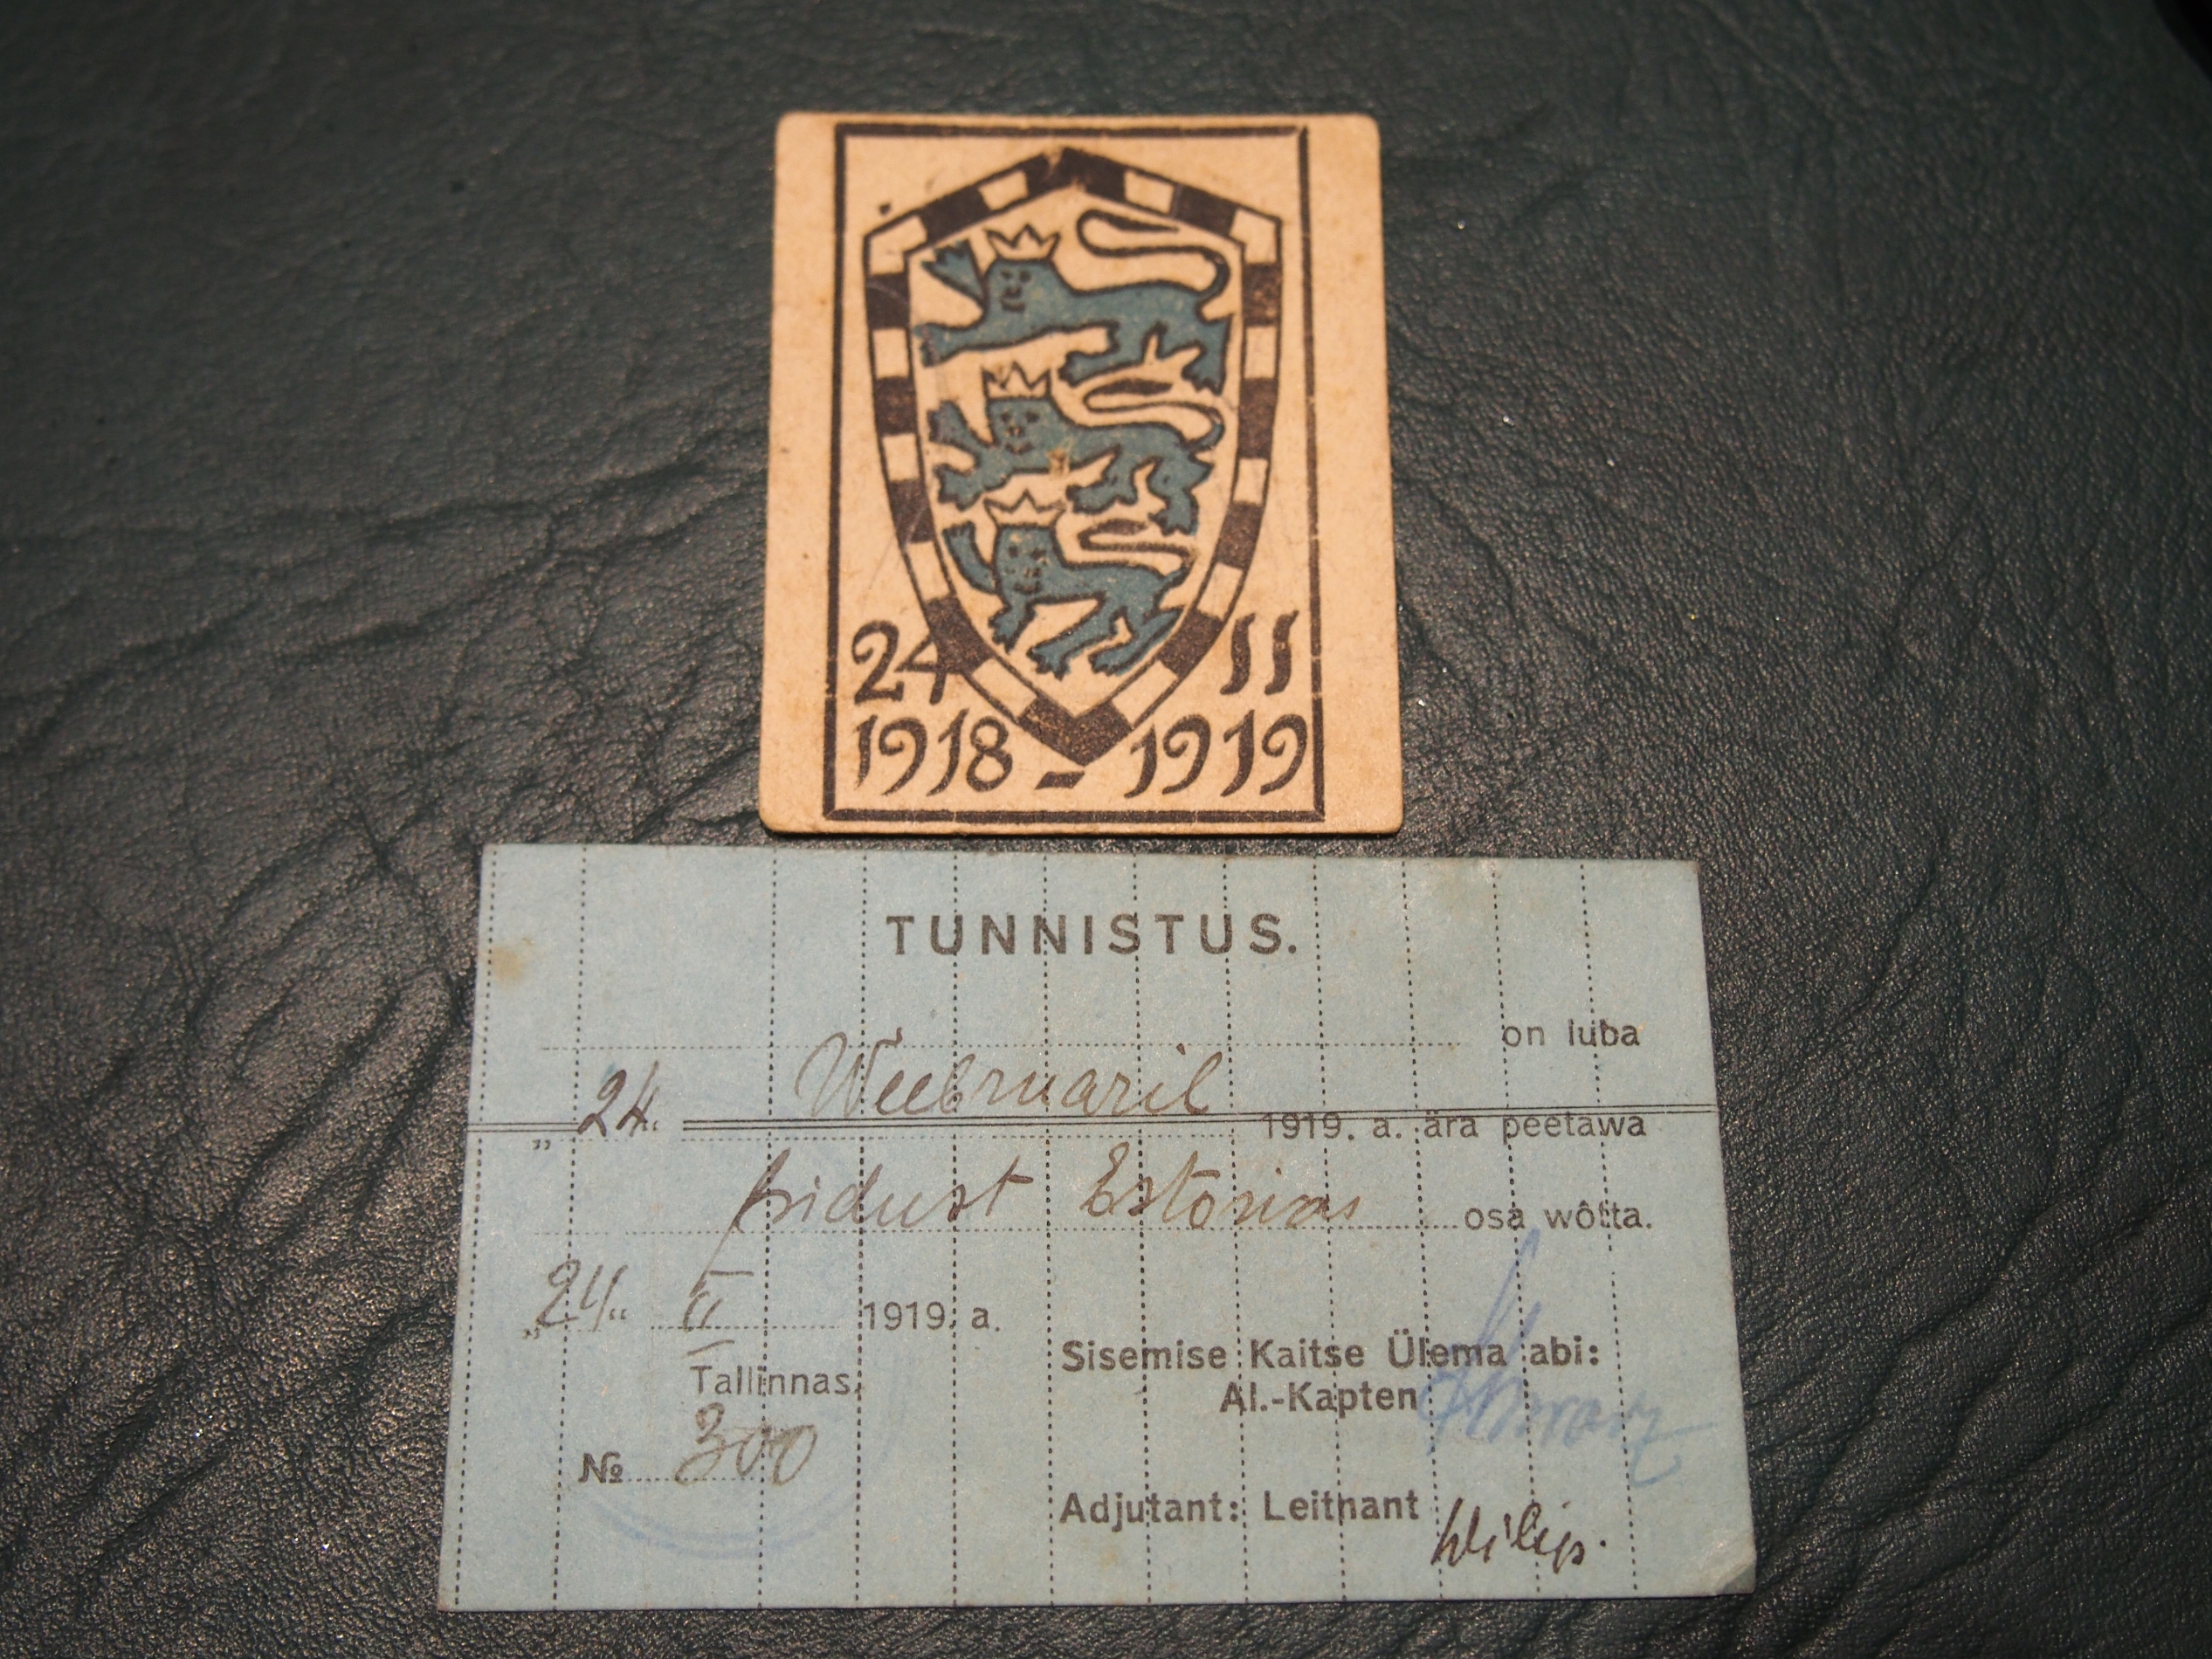 24 II
1918 - 1919
TUNNISTUS.
on luba
„24“ Weebruaril 1919. a. ära peetawa
pidust Estonias osa wôtta.
„24“ II 1919. a.
Tallinnas.
Sisemise Kaitse Ülema abi:
Al.-Kapten
№ 300
Adjutant: Leitnant Wilip.